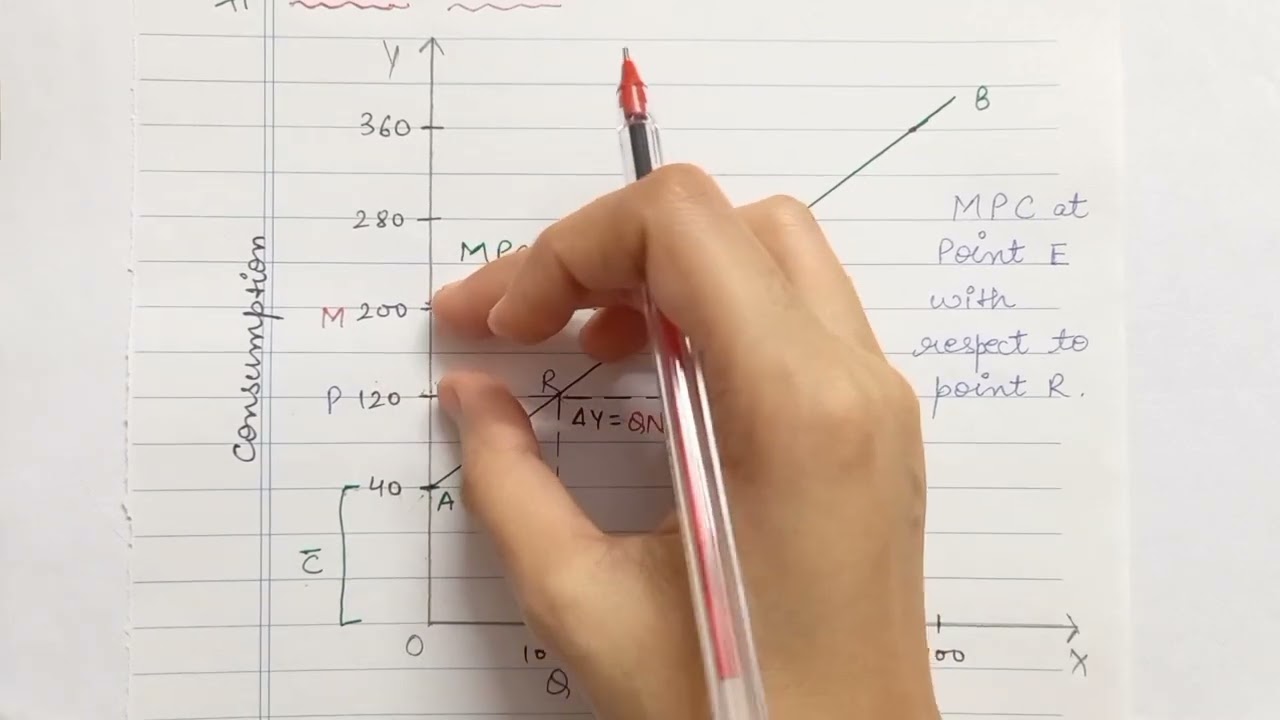 Y
B
360
MPC at
280
Point E
MPC
Consumption
with
M 200
respect to
R
P 120
point R.
ΔY = QN
40
A
C̅
O
10
X
Q